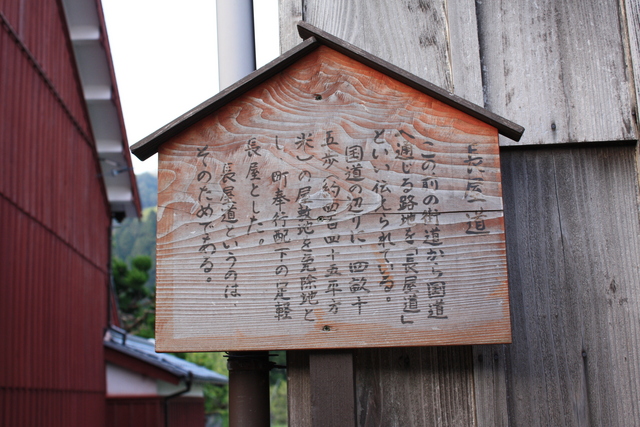 長屋道
この前の街道から国道
へ通じる路地を「長屋道」
といい伝えられている。
国道の辺りに、四畝十
五歩（約四百四十五平方
米）の屋敷地を免除地と
し、町奉行配下の足軽
長屋とした。
長屋道というのは、
そのためである。